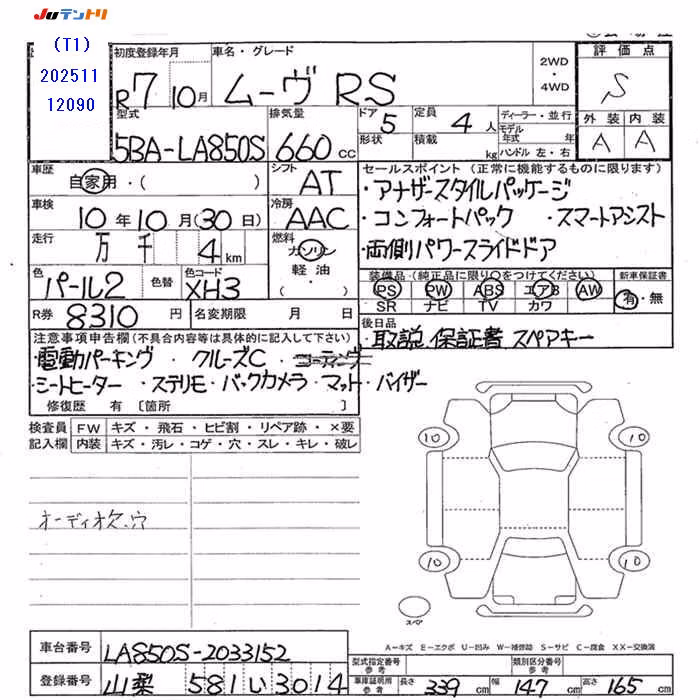 JUテントリ
(T1)
202511
12090
初度登録年月 車名・グレード
R7 10月 ムーヴ RS
2WD
・
4WD
評価点
S
外装 内装
A A
型式 排気量 ドア 定員 ディーラー・並行
5BA-LA850S 660cc 5 4人
形状 積載 kg
モデル年式 年
ハンドル 左・右
車歴 シフト
自家用・( ) AT
車検 冷房
10年10月(30日) AAC
走行 燃料
万 千 4km ガソリン
軽油
・( )
色 色替 色コード
パール2 XH3
R券 8310円 名変期限 月 日
セールスポイント (正常に機能するものに限ります)
・アナザースタイルパッケージ
・コンフォートパック ・スマートアシスト
・両側パワースライドドア
装備品 (純正品に限り○をつけてください) 新車保証書
PS PW ABS エアB AW 有・無
SR ナビ TV カワ
後日品
・取説 保証書 スペアキー
注意事項申告欄(不具合内容等は具体的に記入して下さい)
・電動パーキング ・クルーズC ・コーティング
・シートヒーター ・ステリモ・バックカメラ・マット・バイザー
修復歴 有 [箇所 ]
検査員 FW キズ・飛石・ヒビ割・リペア跡・×要
記入欄 内装 キズ・汚レ・コゲ・穴・スレ・キレ・破レ
オーディオ欠、穴
10 10
10 10
スペア
A-キズ E-エクボ U-凹み W-補修跡 S-サビ C-腐食 XX-交換済
車台番号 LA850S-2033152
登録番号 山梨 581 い 3014
型式指定番号 参考 類別区分番号 参考
車体証明所 参考 長さ 339cm 幅 147cm 高さ 165cm